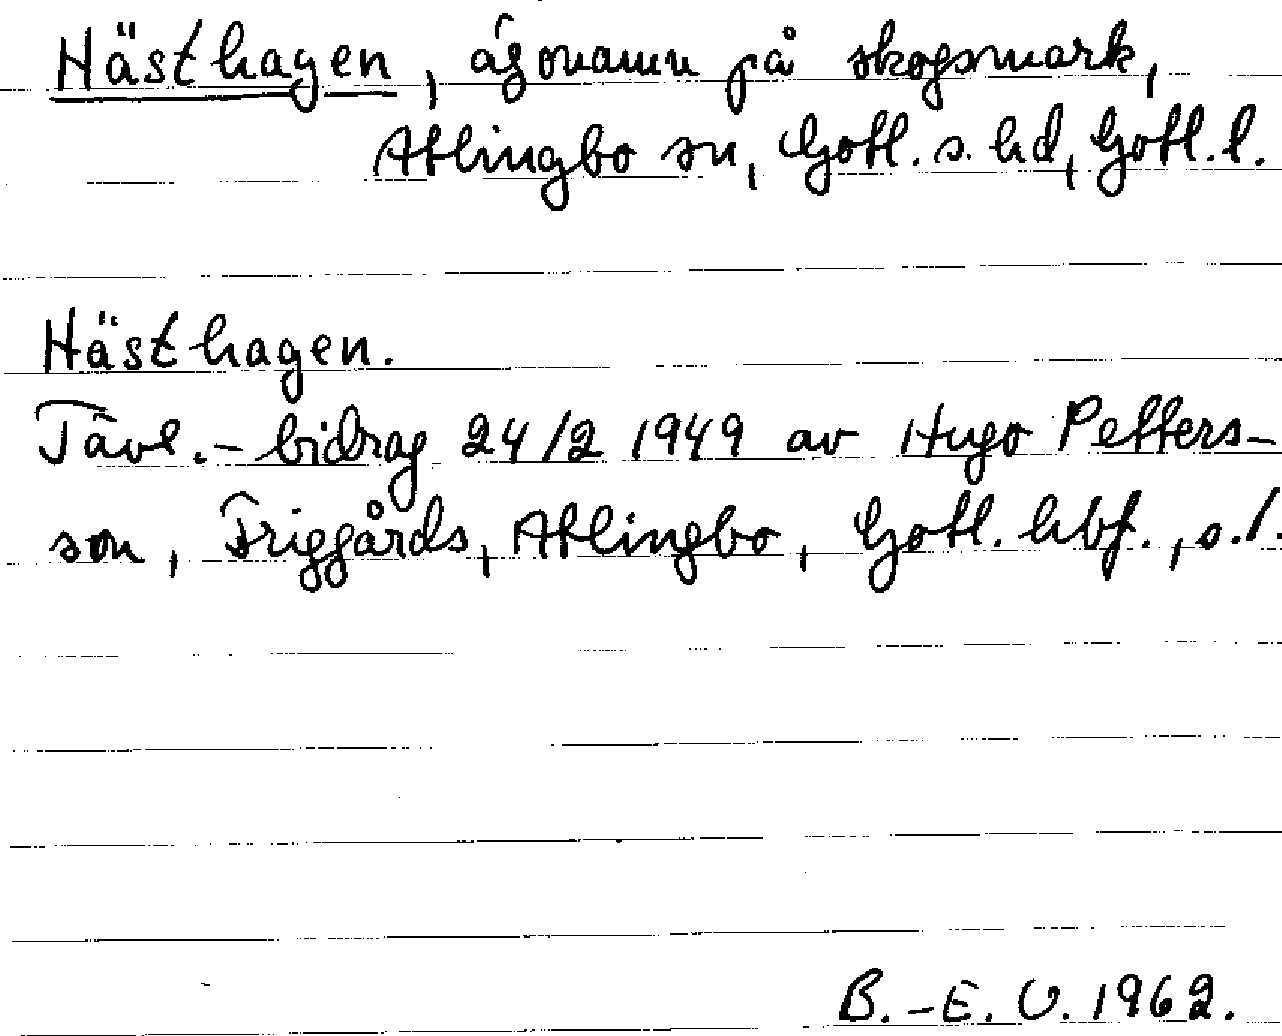 Hästhagen, ägonamn på skogsmark,
Atlingbo sn, Gotl. s. hd, Gotl. l.
Hästhagen.
Tävl.-bidrag 24/2 1949 av Hugo Petters-
son, Friggårds, Atlingbo, Gotl. hbf., s.l.
B.-E. U. 1962.